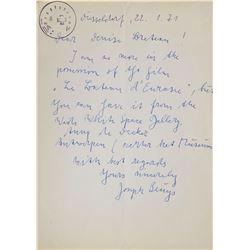 Düsseldorf, 22. 1. 71
Dear Denise Breteau !
I am no more in the
possession of the film
"Le Bateau d'Eurasie", but
you can have it from the
Wide White Space Gallery
Anny de Decker
Antwerpen ( vis-à-vis het Museum
With best regards
Yours sincerely
Joseph Beuys